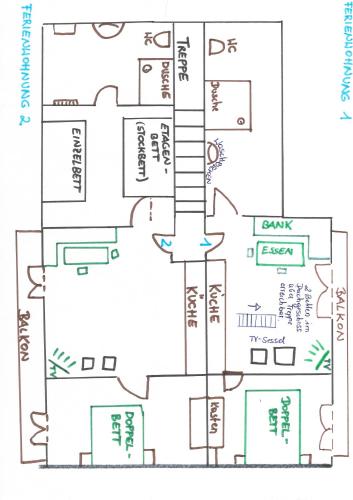 FERIENWOHNUNG 1
FERIENWOHNUNG 2
WC
WC
TREPPE
DUSCHE
Dusche
EINZELBETT
ETAGEN-
BETT
(STOCKBETT)
BANK
ESSEN
2
1
2 Betten im
Dachgeschoss
über Treppe
erreichbar
KÜCHE
KÜCHE
TV-Sessel
TV
TV
BALKON
BALKON
Kasten
DOPPEL-
BETT
DOPPEL-
BETT